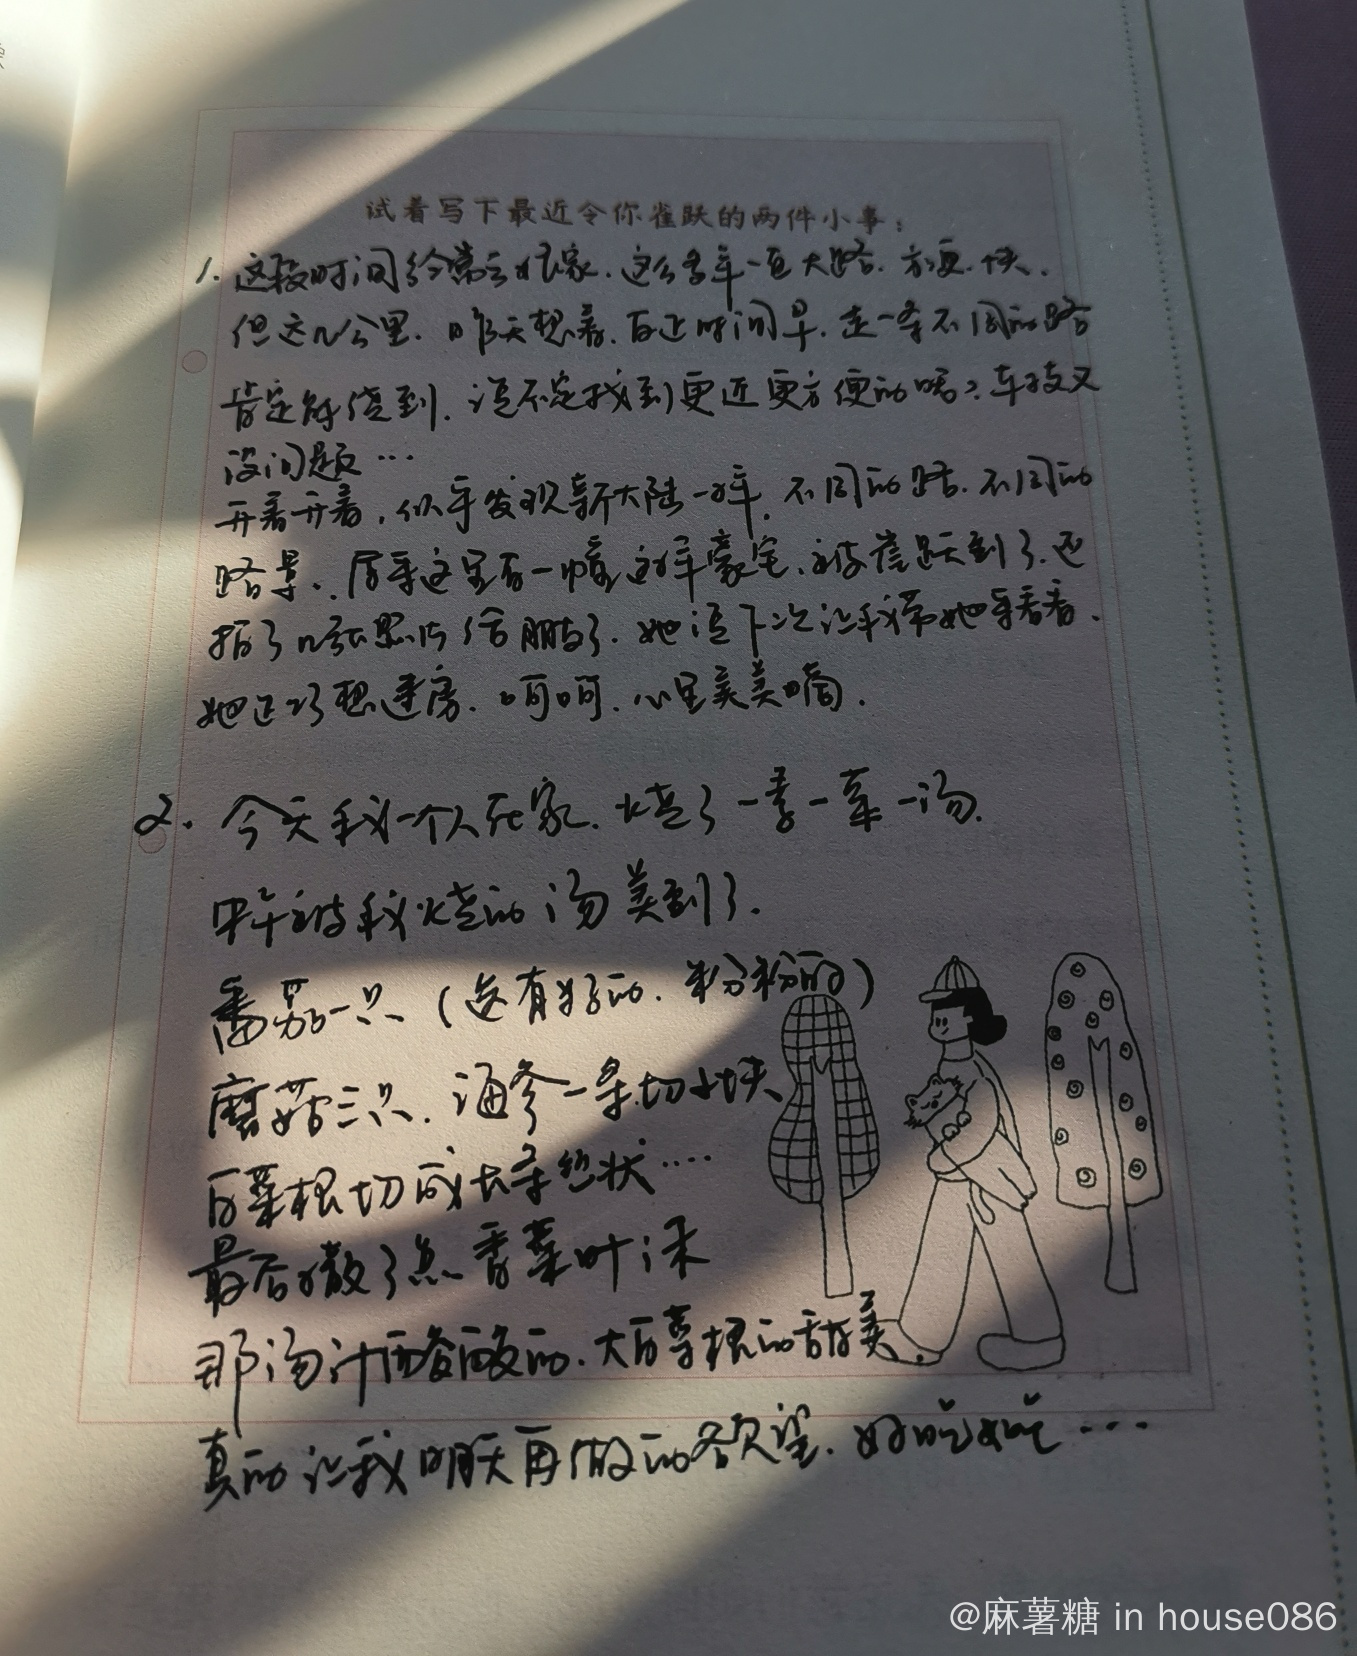 试着写下最近令你雀跃的两件小事：
1. 这段时间经常去娘家.这么多年一直大路.方便.快.
但这几公里.昨天想着.反正时间早.走一条不同的路
肯定能绕到.说不定找到更近更方便的呢?车技又
没问题…
开着开着,似乎发现新大陆一样.不同的路.不同的
路景.原来这里有一幢这样豪宅.被雀跃到了.还
拍了几张照片给朋友了.她说下次让我带她来看看.
她正好想建房.呵呵.心里美美嘀.
2. 今天我一个人在家.烧了一荤一菜一汤.
中午被我烧的汤美到了.
番茄一只(还有好的.粉粉的)
蘑菇三只.海参一条.切小块
白菜根切成长条丝状….
最后撒了点香菜叶沫
那汤汁略酸的.大白菜根的甜美.
真的让我明天再做的欲望.好吃好吃…
@麻薯糖 in house086